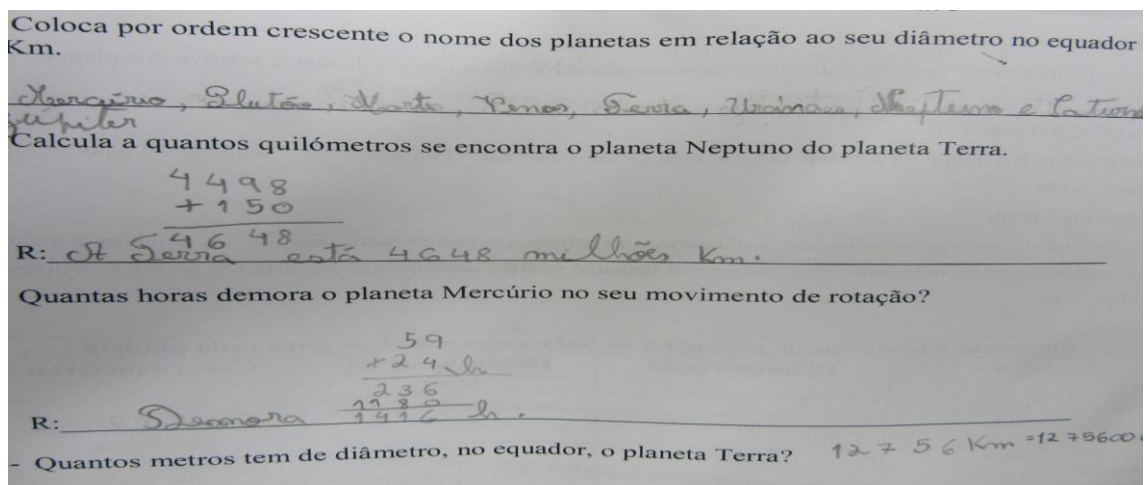 Coloca por ordem crescente o nome dos planetas em relação ao seu diâmetro no equador
Km.
Mergúrio, Plutão, Marte, Venos, Terra, Urano, Neptuno e Saturn
Júpiter
Calcula a quantos quilómetros se encontra o planeta Neptuno do planeta Terra.
4498
+150
4648
R: A Terra está 4648 milhões Km.
Quantas horas demora o planeta Mercúrio no seu movimento de rotação?
59
+24 h
236
1180
R: Demora 1416 h.
- Quantos metros tem de diâmetro, no equador, o planeta Terra? 12756 Km = 1275600